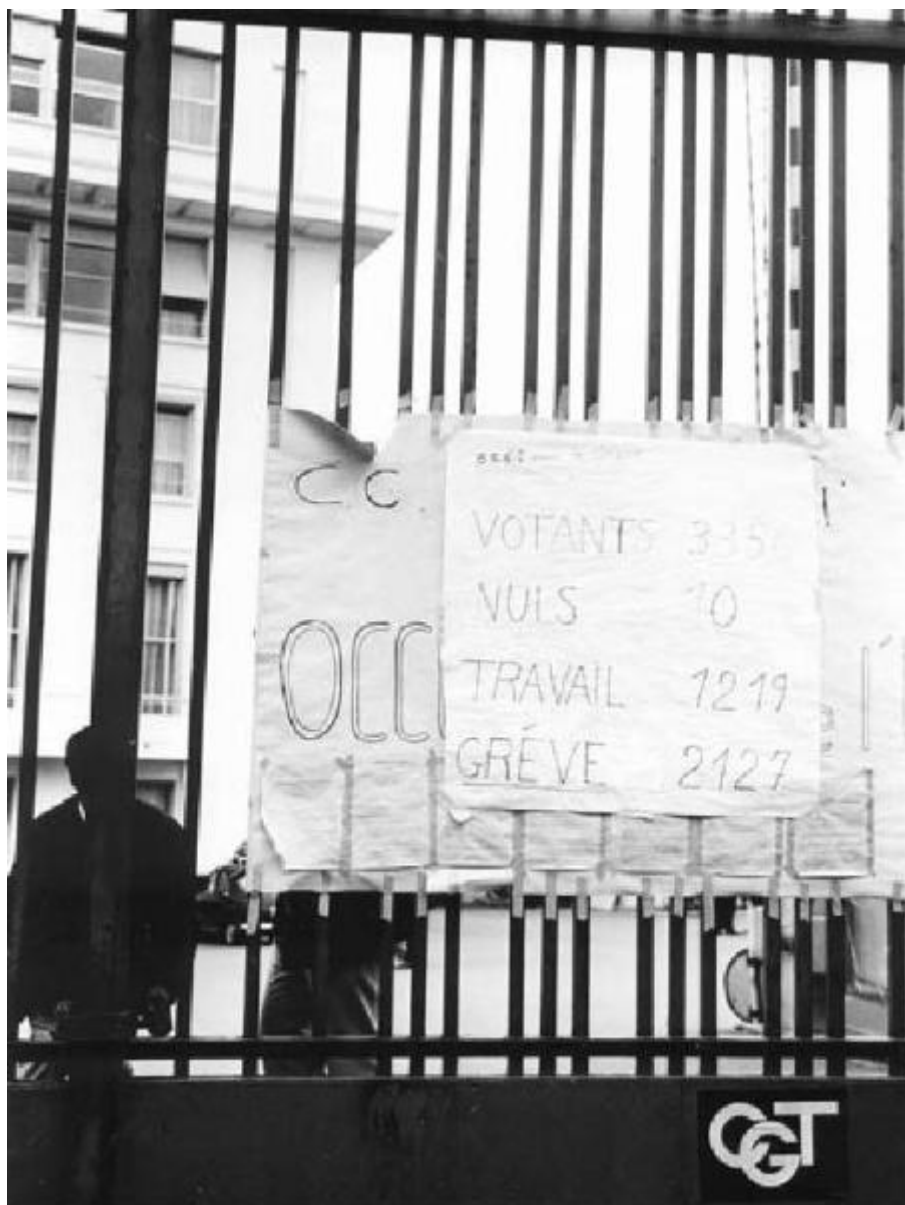 C C
VOTANTS 3356
NULS 10
TRAVAIL 1219
GRÉVE 2127
OCC
l'
CGT